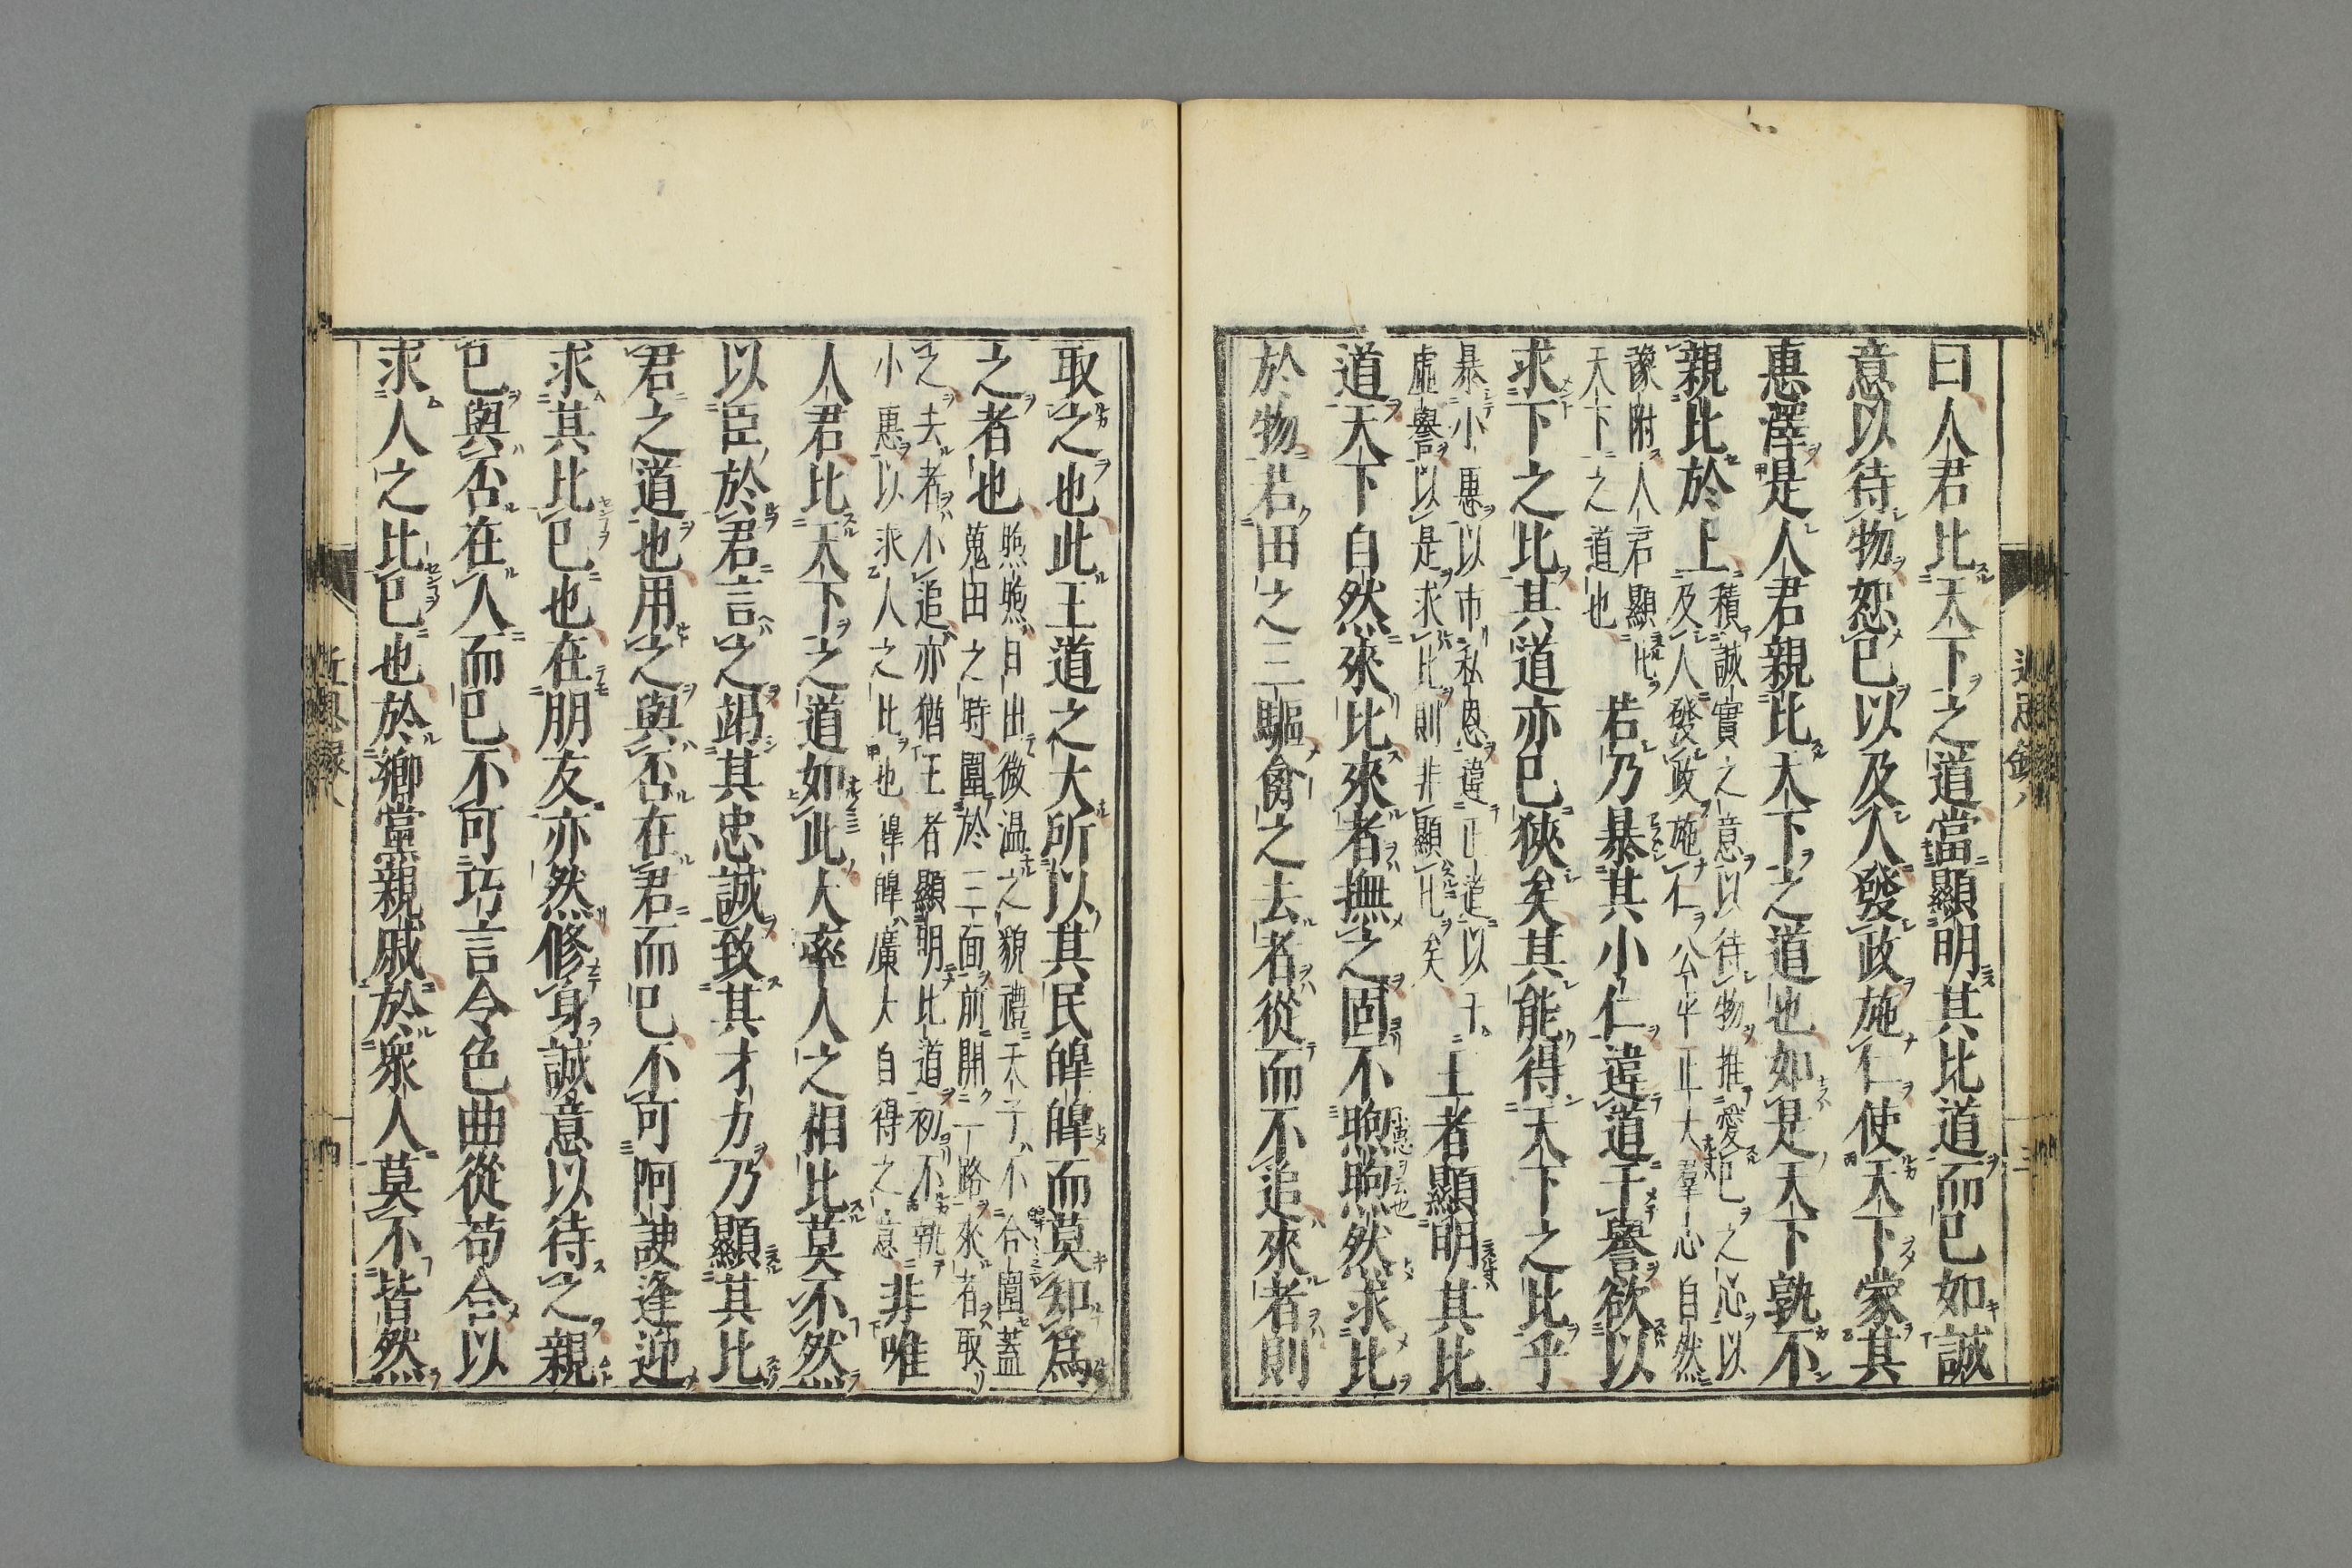 曰人君比天下之道當顯明其比道而已如誠
意以待物恕已以及人發政施仁使天下蒙其
惠澤是人君親比天下之道也如是天下孰不
親比於上
積誠實之意以待物推愛已之心以
及人發政施仁公平正大群心自然
豫附人君顯比
天下之道也
若乃暴其小仁違道干譽欲以
求下之比其道亦已狹矣其能得天下之比乎
暴小惠以市私恩違正道以干
虛譽以是求比則非顯比矣
王者顯明其比
道天下自然來比來者撫之固不煦煦然求比
於物若田之三驅禽之去者從而不追來者則
取之也此王道之大所以其民皥皥而莫知爲
之者也
煦煦日出微温之貌禮天子不合圍蓋
蒐田之時圍於三面前開一路來者取
之去者不追亦猶王者顯明比道初不執
小惠以求人之比也皥皥廣大自得之意
非唯
人君比天下之道如此大率人之相比莫不然
以臣於君言之竭其忠誠致其才力乃顯其比
君之道也用之與否在君而已不可阿諛逢迎
求其比已也在朋友亦然修身誠意以待之親
已與否在人而已不可巧言令色曲從苟合以
求人之比已也於鄉黨親戚於衆人莫不皆然
近思錄八
三
近思錄八
四